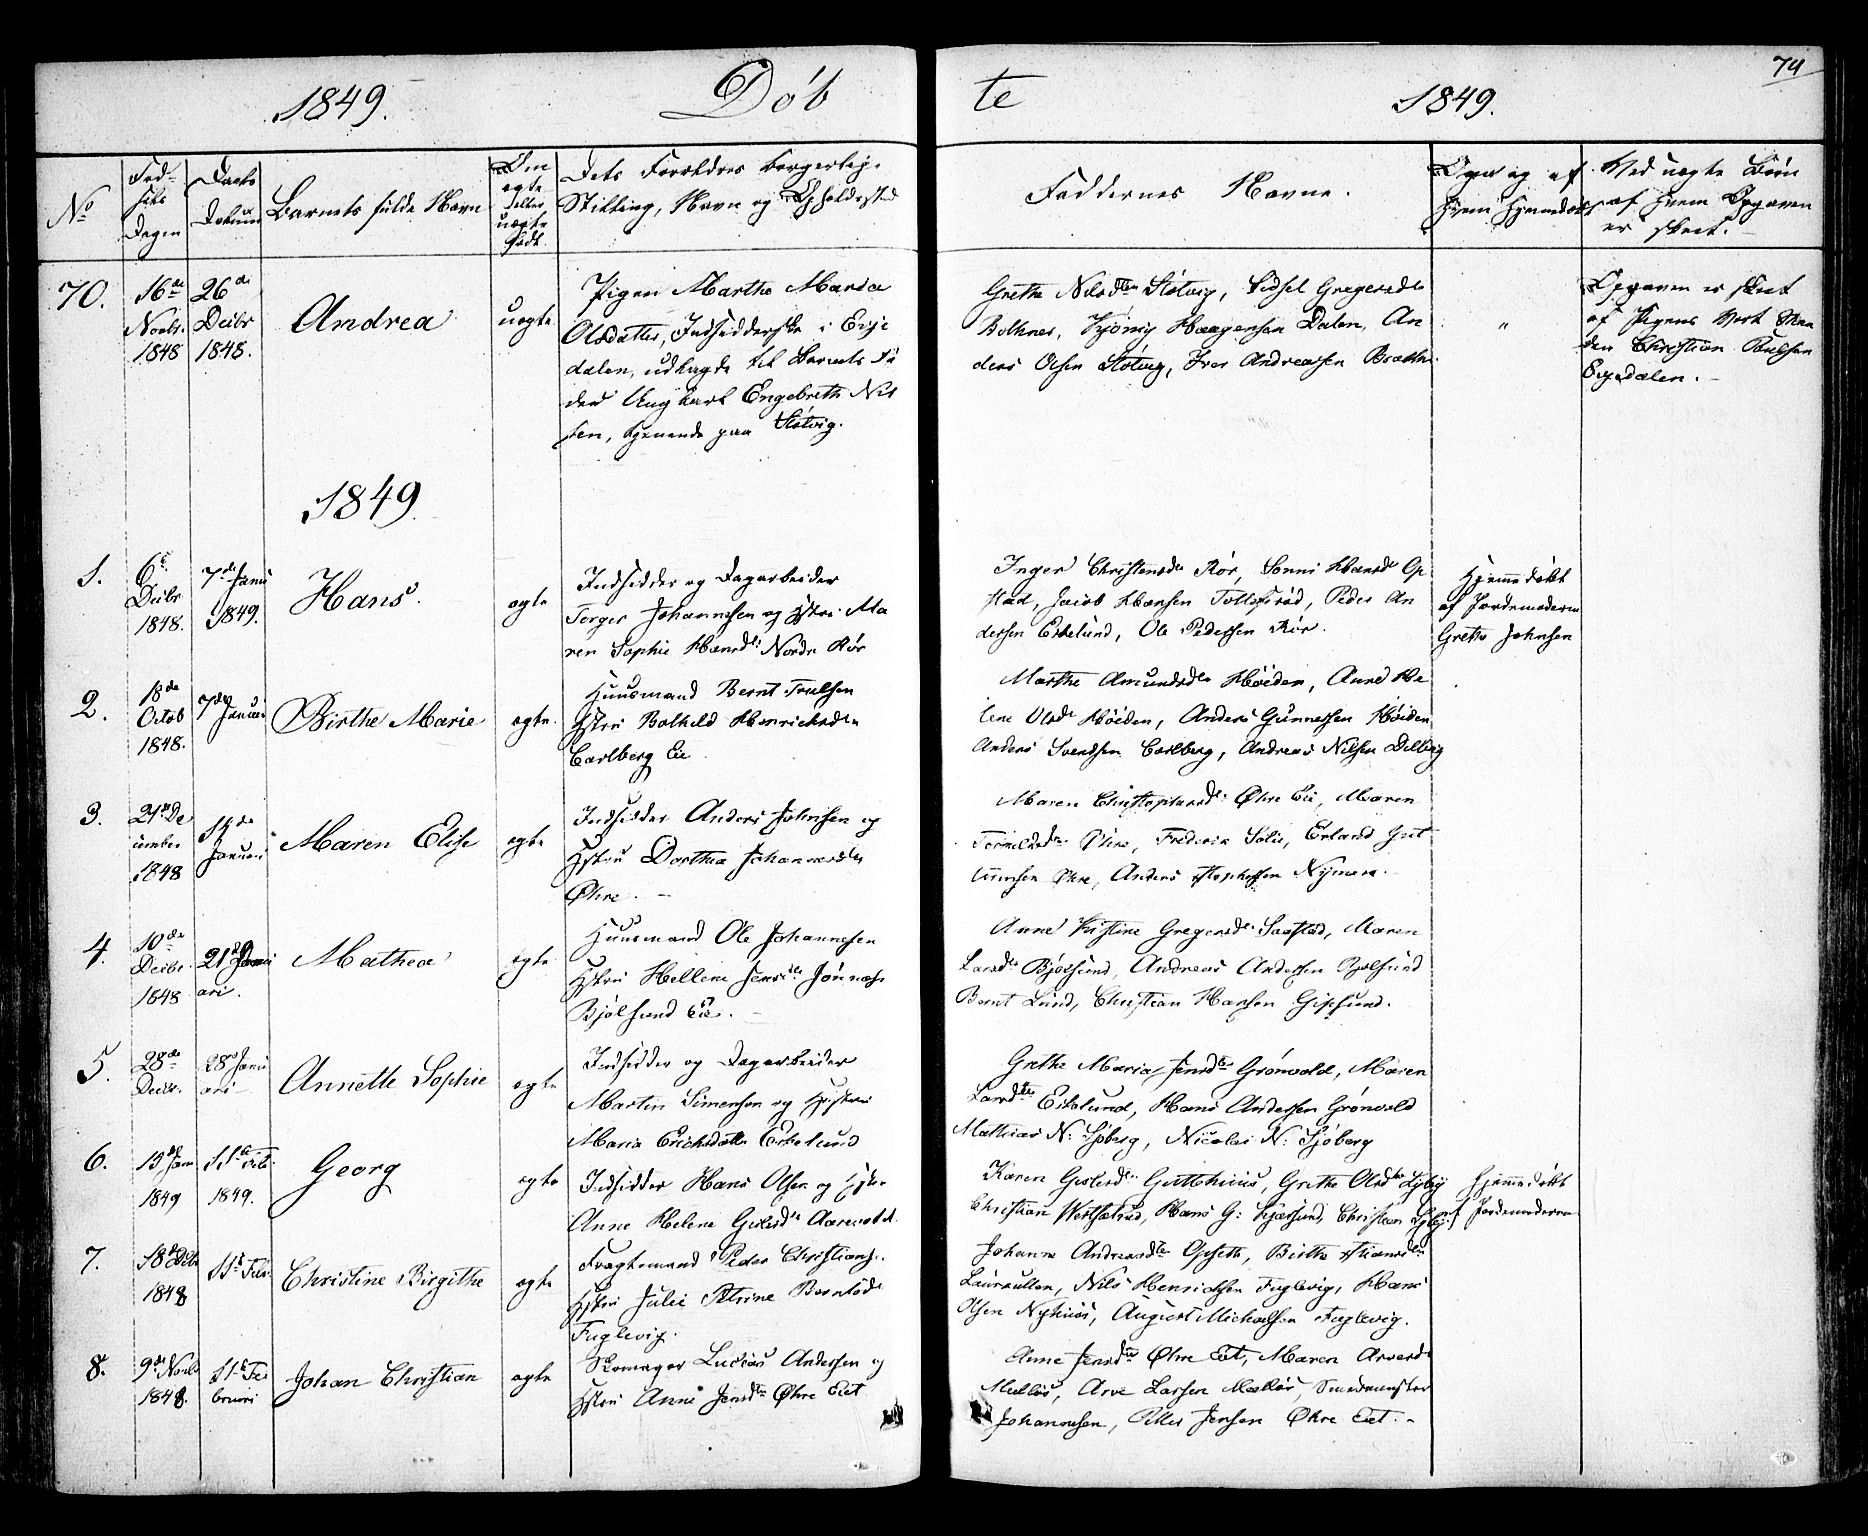 74
1849. Döb te 1849.
No
Fød-
sels
Dagen
Daabs
Datum
Barnets fulde Navn
Om
ægte
eller
uægte
født.
Dets Forældres borgerlige
Stilling, Navn og Opholdssted
Faddernes Navne.
Om og af
hvem hjemmedøbt
Ved uægte Børn
af hvem Opgaven
er skeet.
70.
16de
Novbr.
1848
26de
Decbr
1848.
Andrea
uægte
Pigen Marthe Maria
Olsdatter, Indsidderske i Evje
dalen, udlagde til Barnets Fa
der Ungkarl Engebreth Nil
sen, tjenende paa Støtvig.
Grethe Nilsdtr Støtvig, Sidsel Gregersdtr
Bolknes, Kjönig Haagensen Dalen, An
ders Olsen Støtvig, Iver Andreassen Brække.
"
Opgaven er skeet
af Pigens Vert Man
den Christian Paulsen
Evjedalen.
1849
1.
6te
Decbr
1848.
7de Janu
1849.
Hans.
ægte
Indsidder og Dagarbeider
Torger Johannesen og Hstru Ma
ren Sophie Hansdtr Nordre Rör
Inger Christensdtr Rör, Hansdtr Op
stad, Jacob Hansen Tollefsrød, Peder An
dersen Eskelund, Ole Pedersen Rör.
Hjemmedøbt
af Jordemoderen
Grethe Johnsen
2.
18de
Octob
1848.
7de Januar
Birthe Marie
ægte.
Huusmand Bernt Truelsen
Hstru Bolheld Henrichsdtr
Carlberg Eie
Marthe Amundsdtr Höiden, Anne He
lene Olsdtr Höiden, Anders Gunnersen Höiden
Anders Svendsen Carlberg, Andreas Nilsen Dilling
3.
21de De
cember
1848
14de
Januari
Maren Elise
ægte
Indsidder Anders Johnsen og
Hstru Dorthea Johannesdtr
Øhre.
Maren Christophersdtr Øhre Eie, Maren
Øhre, Frederik Solie, Erland Gut
tormsen Øhre, Anders
4.
10de
Decbr.
1848
21de Janu
ari.
Mathea
ægte
Huusmand Ole Johannesen
Hstru Hellene Jensdtr
Bjølsund Eie.
Anne Kistine Gregersdtr Saastad, Maren
Larsdtr Bjølsund, Andreas Andersen Bjølsund
Bernt Lund, Christian Hansen Gipsund.
5.
28de
Decbr.
28de Janu
ari
Annette Sophie
ægte
Indsidder og Dagarbeider
Martin Simensen og Hustru
Maria Erichsdatter Eskelund
Grethe Maria Jensdtr Grönvold, Maren
Larsdtr Eskelund, Hans Andersen Grönvold
Mathias N: Sjöberg, Nicolai N: Sjöberg
6.
15de Jan
1849
11te Feb.
1849.
Georg
ægte
Indsidder Hans Olsen og Hstru
Anne Helene Gulersdtr Aarevold.
Karen Gulersdtr Guttehuus, Grethe Olsdtr Lyby
Christian Hans G: Kjærsund, Christian Lyby.
Hjemmedøbt
af Jordemoderen
7.
18de Decbr
1848
11te Febr.
Christine Birgithe
ægte
Fragtemand Peder Christians.
Hstru Julie Petrine Berntsdtr
Fuglevig.
Johanne Andreasdtr Opseth, Birthe
Laurkullen, Nils Henrichsen Fuglevig, Hans
Olsen Nyhuus, August Michaelsen Fuglevig.
8.
9de Novbr
1848.
11te Fe
bruari
Johan Christian
ægte
Skomager Lucias Andersen og
Hstru Anne Jensdtr Øhre Eiet
Anne Jensdtr Øhre Eiet, Maren Arvesdtr
Melløs, Arve Larsen Melløs, Smedmester
Johannesen, Peder Jensen Øhre Eiet.